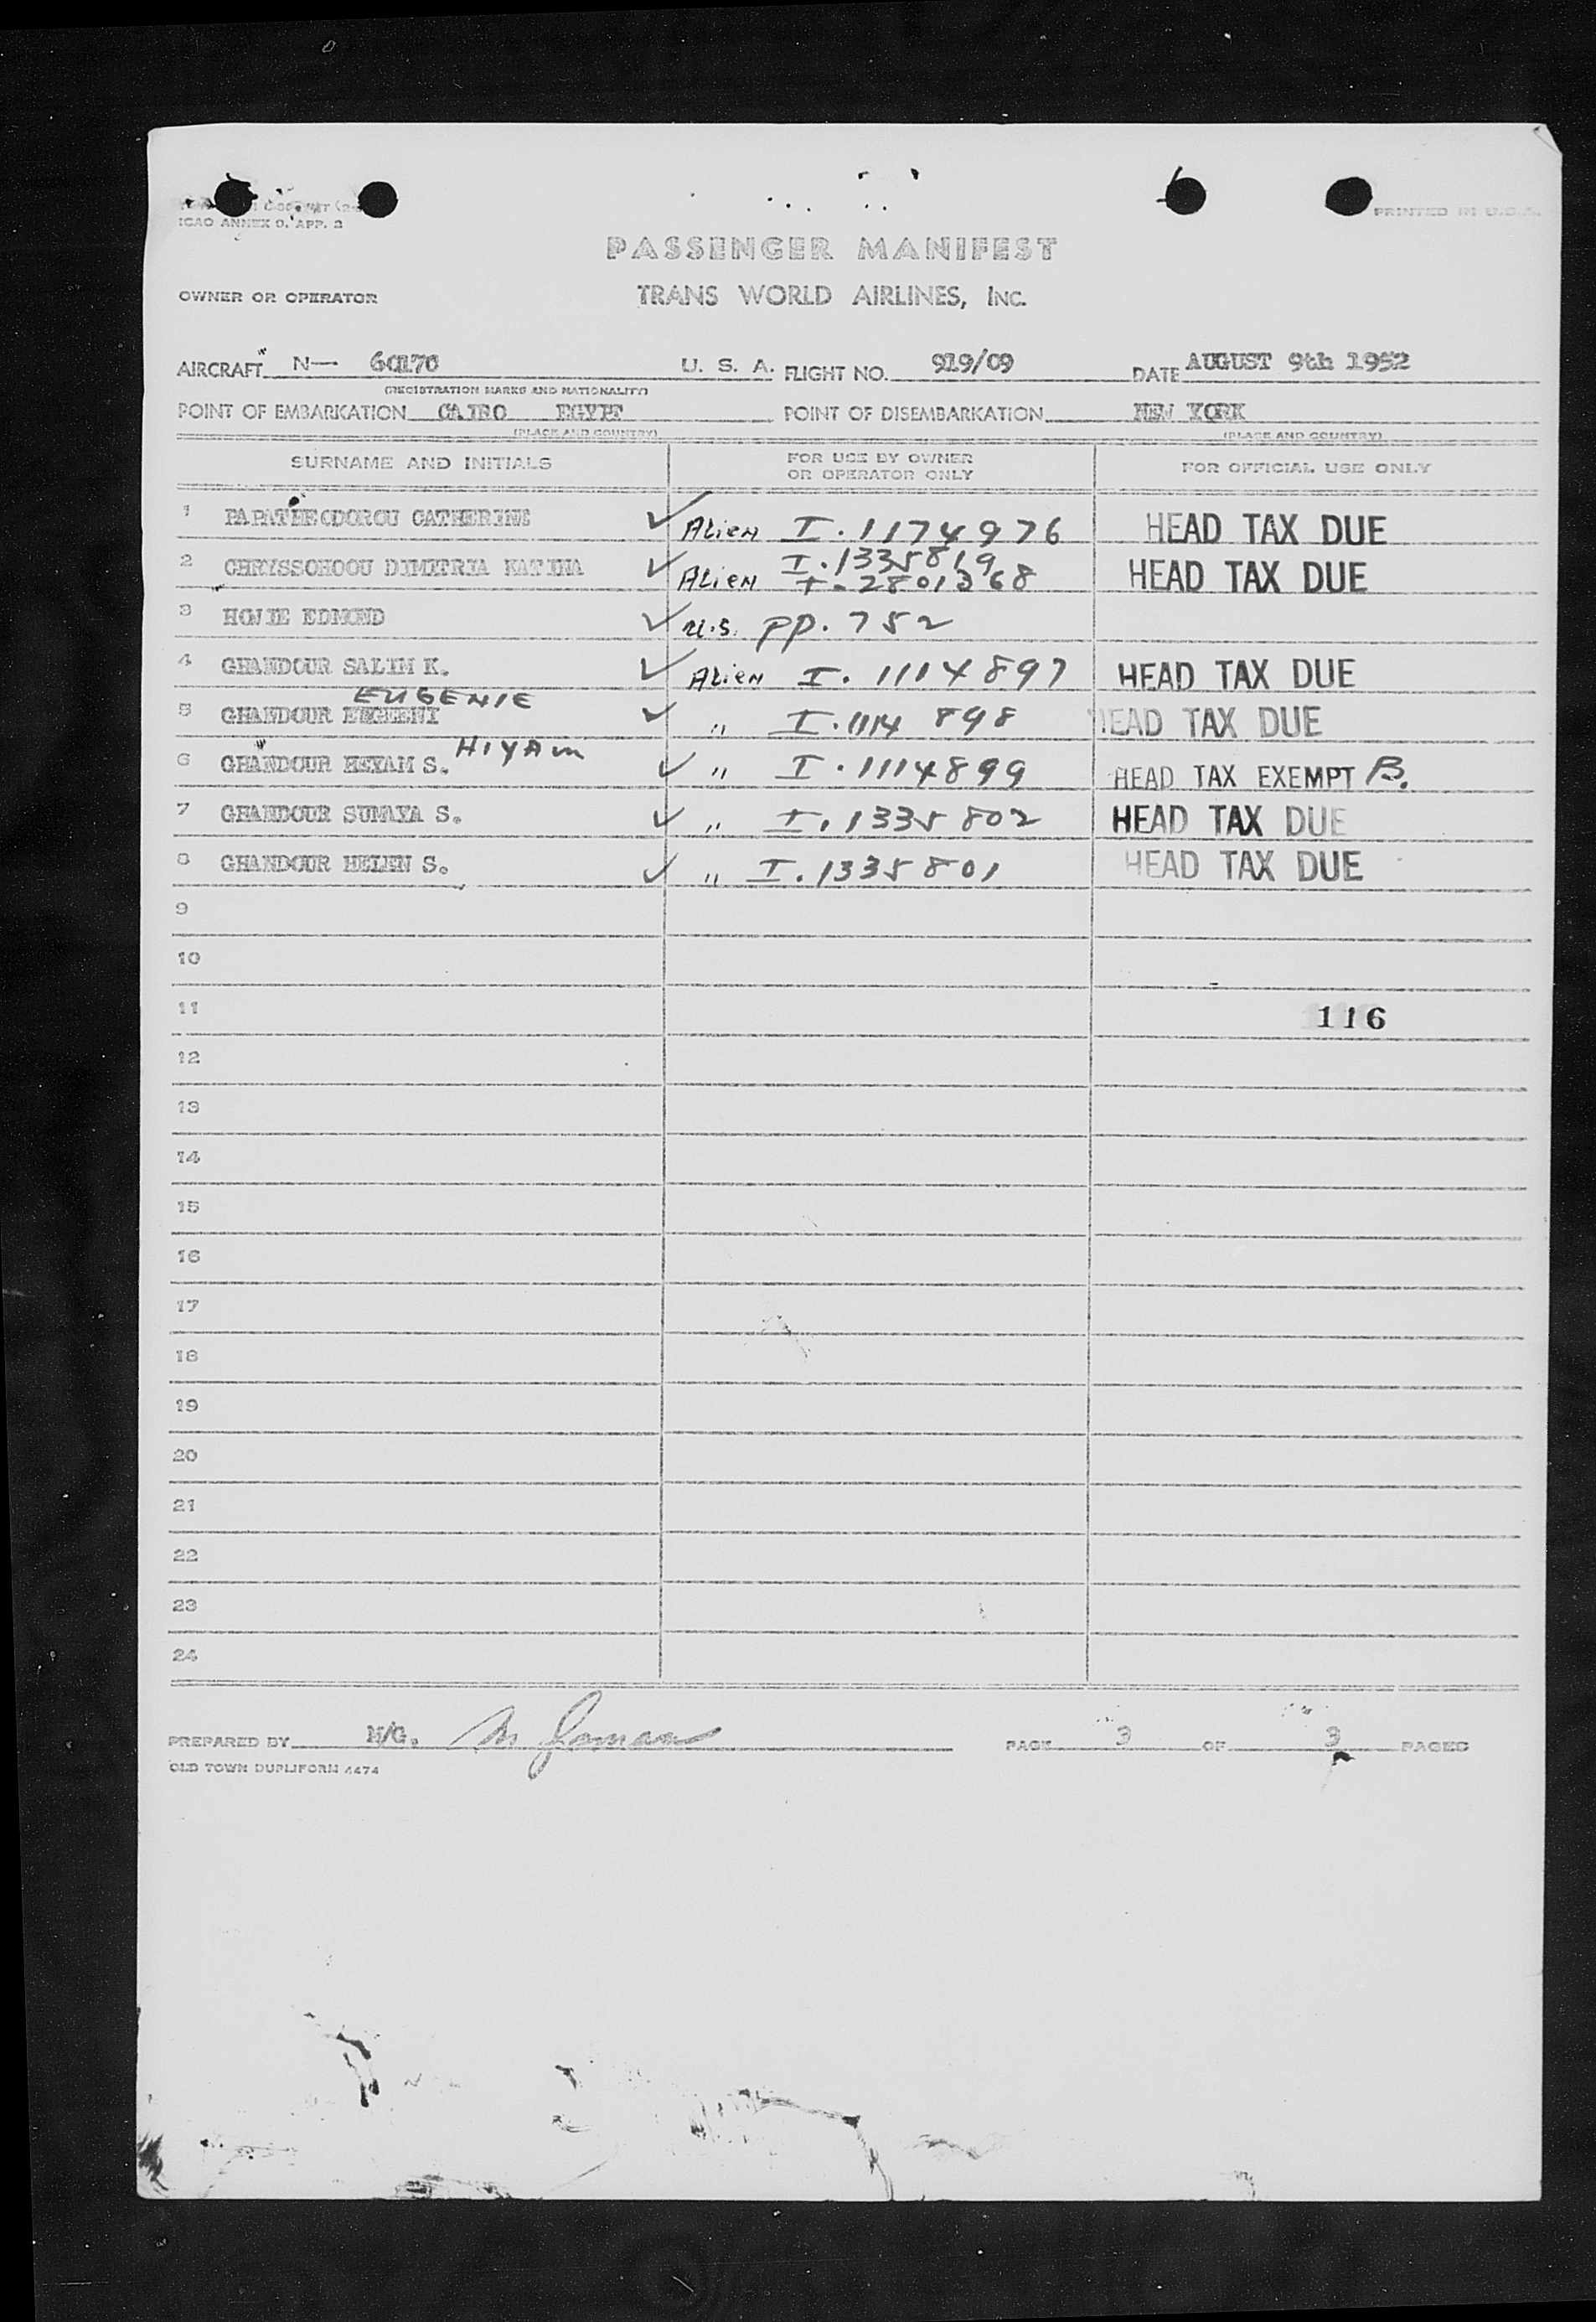 ICAO ANNEX 9, APP. 3
PRINTED IN U.S.A.
PASSENGER MANIFEST
OWNER OR OPERATOR TRANS WORLD AIRLINES, INC.
AIRCRAFT N— U. S. A. FLIGHT NO. 919/09 DATE AUGUST 9th 1952
(REGISTRATION MARKS AND NATIONALITY)
POINT OF EMBARKATION CAIRO EGYPT POINT OF DISEMBARKATION NEW YORK
(PLACE AND COUNTRY) (PLACE AND COUNTRY)
SURNAME AND INITIALS FOR USE BY OWNER OR OPERATOR ONLY FOR OFFICIAL USE ONLY
1 PAPATHEODOROU CATHERINE ✓ Alien I. 1174976 HEAD TAX DUE
I. 1335819
2 CHRYSSOHOOU DIMITRIA KATINA ✓ Alien I-2801368 HEAD TAX DUE
3 HOWIE EDMOND ✓ U.S. PP. 752
4 GHANDOUR SALIM K. ✓ Alien I. 1114897 HEAD TAX DUE
EUGENIE
5 GHANDOUR EUGEENI ✓ " I. 1114 898 HEAD TAX DUE
6 GHANDOUR HEYAM S. HIYAM ✓ " I. 1114899 HEAD TAX EXEMPT B.
7 GHANDOUR SUMAYA S. ✓ " I. 1335802 HEAD TAX DUE
8 GHANDOUR HELEN S. ✓ " I. 1335801 HEAD TAX DUE
9
10
11 116
12
13
14
15
16
17
18
19
20
21
22
23
24
PREPARED BY M/G. PAGE 3 OF 3 PAGES
OLD TOWN DUPLIFORM 4474